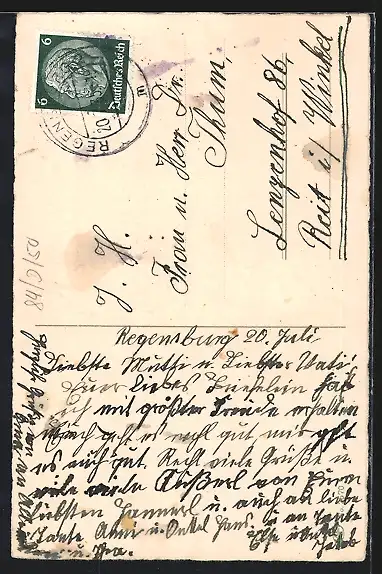 6
6
Deutsches Reich
REGENS
20
J. H.
Frau u. Herr Dr.
Tham,
Lenzenhof 86,
Reit i/ Winkel
Regensburg 20. Juli
Liebste Mutti u. Liebster Vati!
Euer liebes Brieflein hab
ich mit größter Freude erhalten
Euch geht es recht gut mir geht
es auch gut. Recht viele Grüße u
viele viele Bußerl von Eurem
liebsten u. auch an liebe
Tante u. Onkel Hans. u an Tante
Else u. Onkel